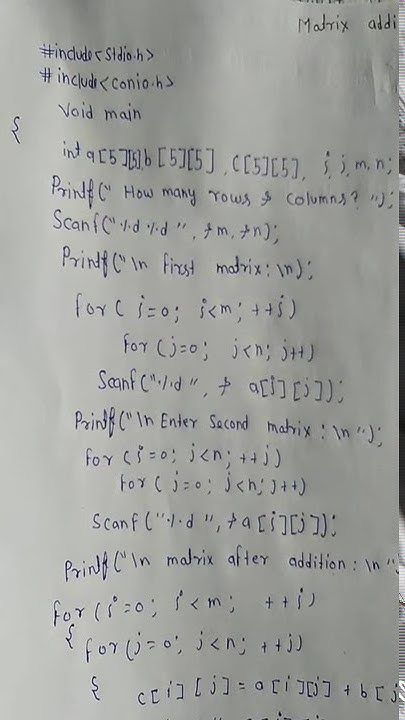 Matrix addi
#include<Stdio.h>
# include<conio.h>
Void main
{
int a[5][5],b[5][5], C[5][5], i, j, m, n;
Printf(" How many rows & Columns? ");
Scanf("%d %d ", &m, &n);
Printf("\n first matrix: \n);
for ( i=0; i<m; ++i)
for (j=0; j<n; j++)
Scanf("%d ", & a[i][j]);
Printf("\n Enter Second matrix : \n ");
for (i=0; j<n; ++j)
for ( j=0; j<n; j++)
Scanf("%d ", &a[i][j]);
Printf("\n matrix after addition: \n ",
for (i=0; i<m; ++i)
{ for (j=0; j<n; ++j)
{ c[i][j] = a[i][j] + b[j